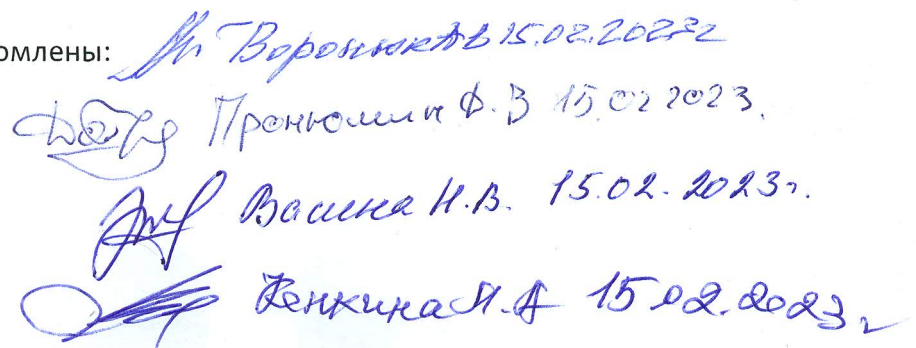 омлены: Воронюк А В 15.02.2023г
Пронюшин Ф. В 15.02 2023.
Васина Н.В. 15.02.2023г.
Кенкина 15.02.2023г